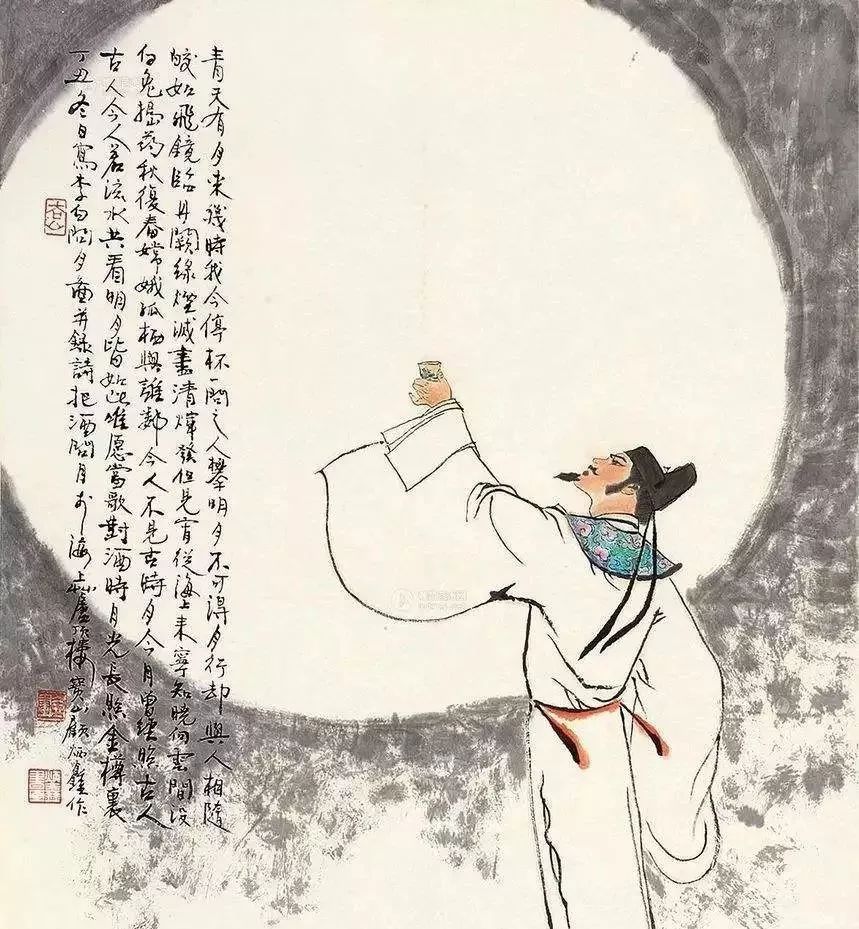 青天有月来幾時我今停杯一問之人攀明月不可得月行却與人相隨
皎如飛鏡臨丹闕綠煙滅盡清煇發但見宵從海上来寧知曉向雲間没
白兔搗药秋復春嫦娥孤栖與誰鄰今人不見古時月今月曾經照古人
古人今人若流水共看明月皆如此唯愿當歌對酒時月光長照金樽裏
丁丑冬日寫李白問月圖并録詩把酒問月於海上廬樓寶山顧炳鑫作